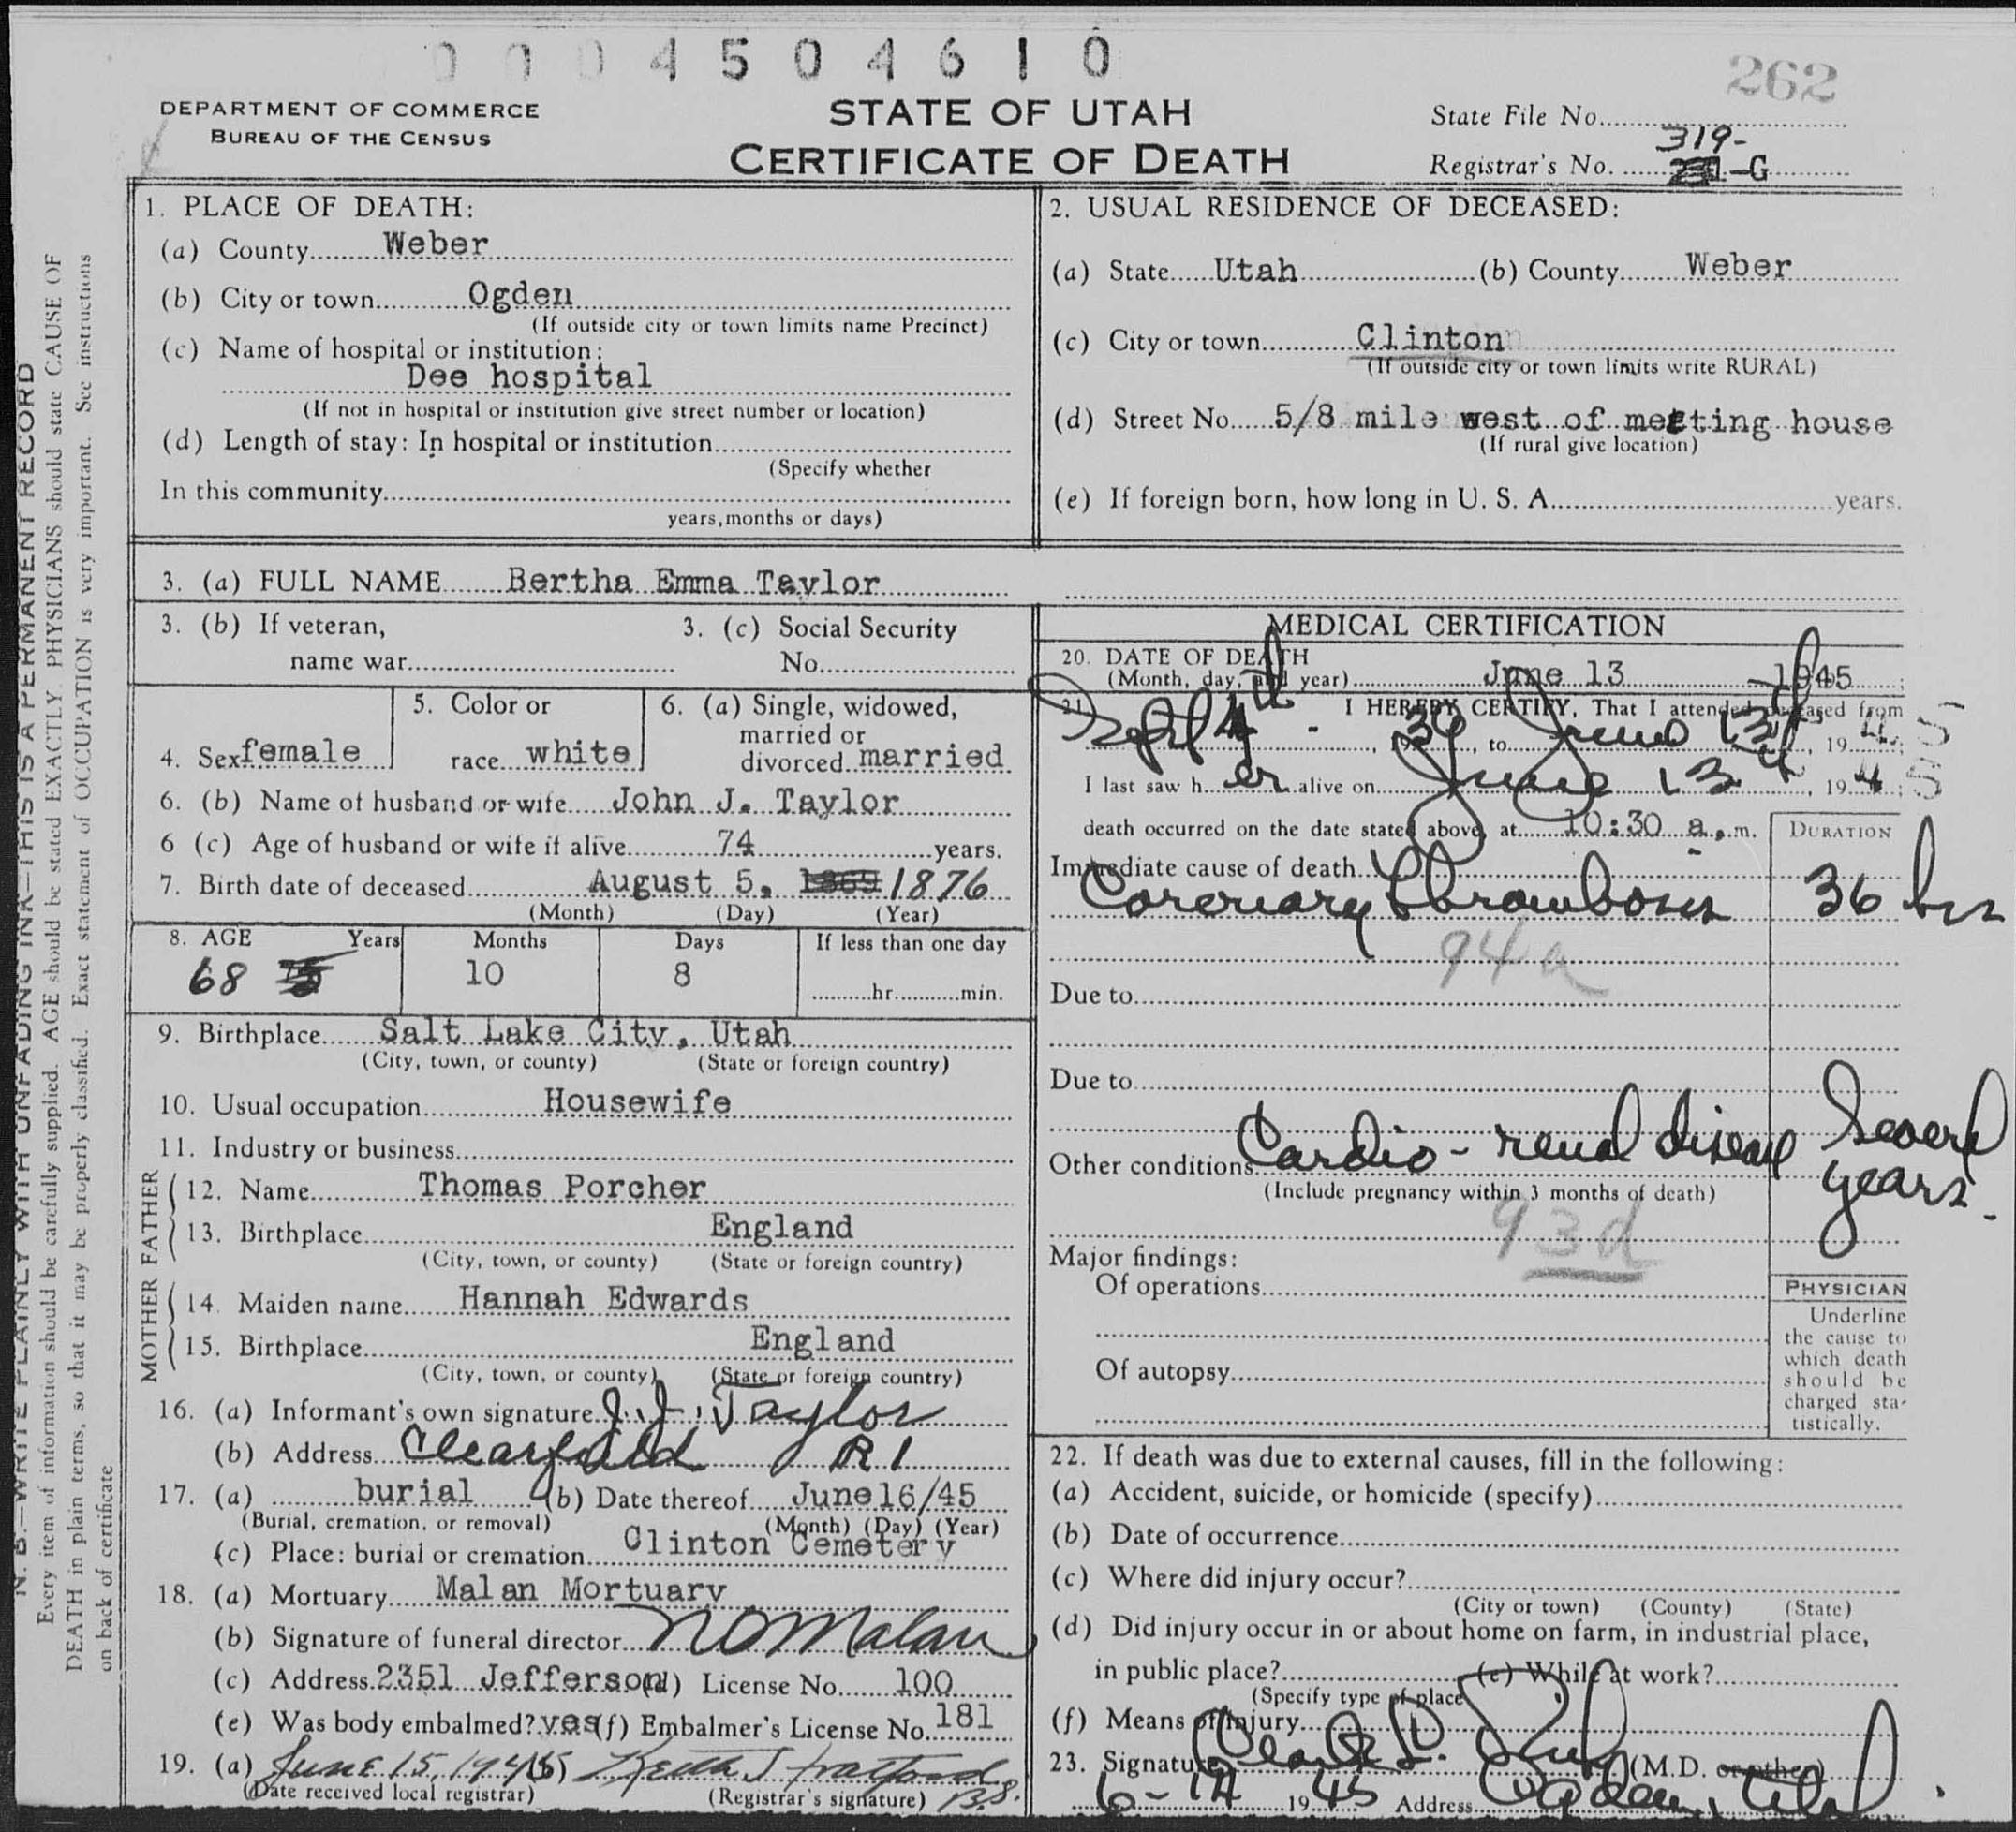 0004504610
262
DEPARTMENT OF COMMERCE
BUREAU OF THE CENSUS
STATE OF UTAH
CERTIFICATE OF DEATH
State File No.
319-
Registrar's No. -G
1. PLACE OF DEATH:
(a) County Weber
(b) City or town Ogden
(If outside city or town limits name Precinct)
(c) Name of hospital or institution:
Dee hospital
(If not in hospital or institution give street number or location)
(d) Length of stay: In hospital or institution
(Specify whether
In this community
years, months or days)
2. USUAL RESIDENCE OF DECEASED:
(a) State Utah (b) County Weber
(c) City or town Clinton
(If outside city or town limits write RURAL)
(d) Street No. 5/8 mile west of meeting house
(If rural give location)
(e) If foreign born, how long in U. S. A. years.
3. (a) FULL NAME Bertha Emma Taylor
3. (b) If veteran,
name war
3. (c) Social Security
No.
4. Sex female
5. Color or
race white
6. (a) Single, widowed,
married or
divorced married
6. (b) Name of husband or wife John J. Taylor
6 (c) Age of husband or wife if alive 74 years.
7. Birth date of deceased August 5, 1869 1876
(Month) (Day) (Year)
8. AGE Years Months Days If less than one day
68 10 8 hr. min.
9. Birthplace Salt Lake City, Utah
(City, town, or county) (State or foreign country)
10. Usual occupation Housewife
11. Industry or business
FATHER
12. Name Thomas Porcher
13. Birthplace England
(City, town, or county) (State or foreign country)
MOTHER
14. Maiden name Hannah Edwards
15. Birthplace England
(City, town, or county) (State or foreign country)
16. (a) Informant's own signature J. J. Taylor
(b) Address Clearfield R 1
17. (a) burial (b) Date thereof June 16/45
(Burial, cremation, or removal) (Month) (Day) (Year)
(c) Place: burial or cremation Clinton Cemetery
18. (a) Mortuary Malan Mortuary
(b) Signature of funeral director N O Malan
(c) Address 2351 Jefferson (d) License No. 100
(e) Was body embalmed? yes (f) Embalmer's License No. 181
19. (a) June 15, 1945 (b) Keith Stratford
(Date received local registrar) (Registrar's signature) B.S.
MEDICAL CERTIFICATION
20. DATE OF DEATH
(Month, day, and year) June 13 1945
21. I HEREBY CERTIFY, That I attended deceased from
Sept 4th - , 1939, to June 13th, 194
I last saw her alive on June 13th, 194
death occurred on the date stated above, at 10:30 a.m.
DURATION
Immediate cause of death
Coronary thrombosis 36 hrs
94a
Due to
Due to
Other conditions Cardio-renal disease Several years.
(Include pregnancy within 3 months of death)
93d
Major findings:
Of operations
Of autopsy
PHYSICIAN
Underline
the cause to
which death
should be
charged sta-
tistically.
22. If death was due to external causes, fill in the following:
(a) Accident, suicide, or homicide (specify)
(b) Date of occurrence
(c) Where did injury occur?
(City or town) (County) (State)
(d) Did injury occur in or about home on farm, in industrial place,
in public place? (e) While at work?
(Specify type of place
(f) Means of injury
23. Signature (M.D. or other)
6-14 1945 Address Ogden, Utah
N. B.—WRITE PLAINLY WITH UNFADING INK—THIS IS A PERMANENT RECORD
Every item of information should be carefully supplied. AGE should be stated EXACTLY. PHYSICIANS should state CAUSE OF
DEATH in plain terms, so that it may be properly classified. Exact statement of OCCUPATION is very important. See instructions
on back of certificate